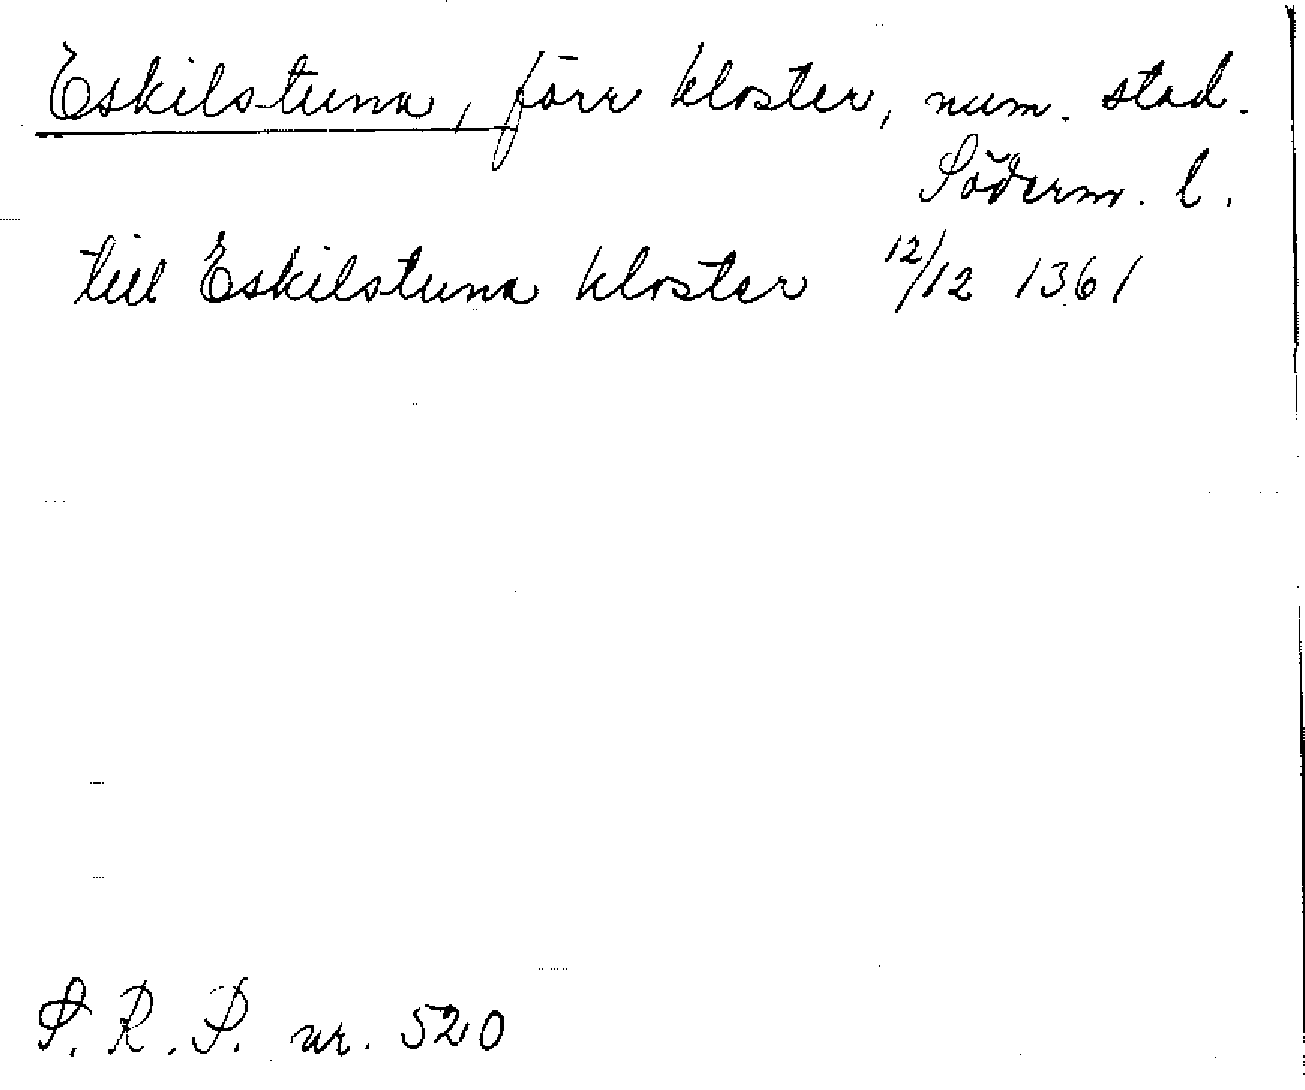 Eskilstuna, förr kloster, num. stad.
Söderm. l.
till Eskilstuna kloster 12/12 1361
S. R. P. nr. 520